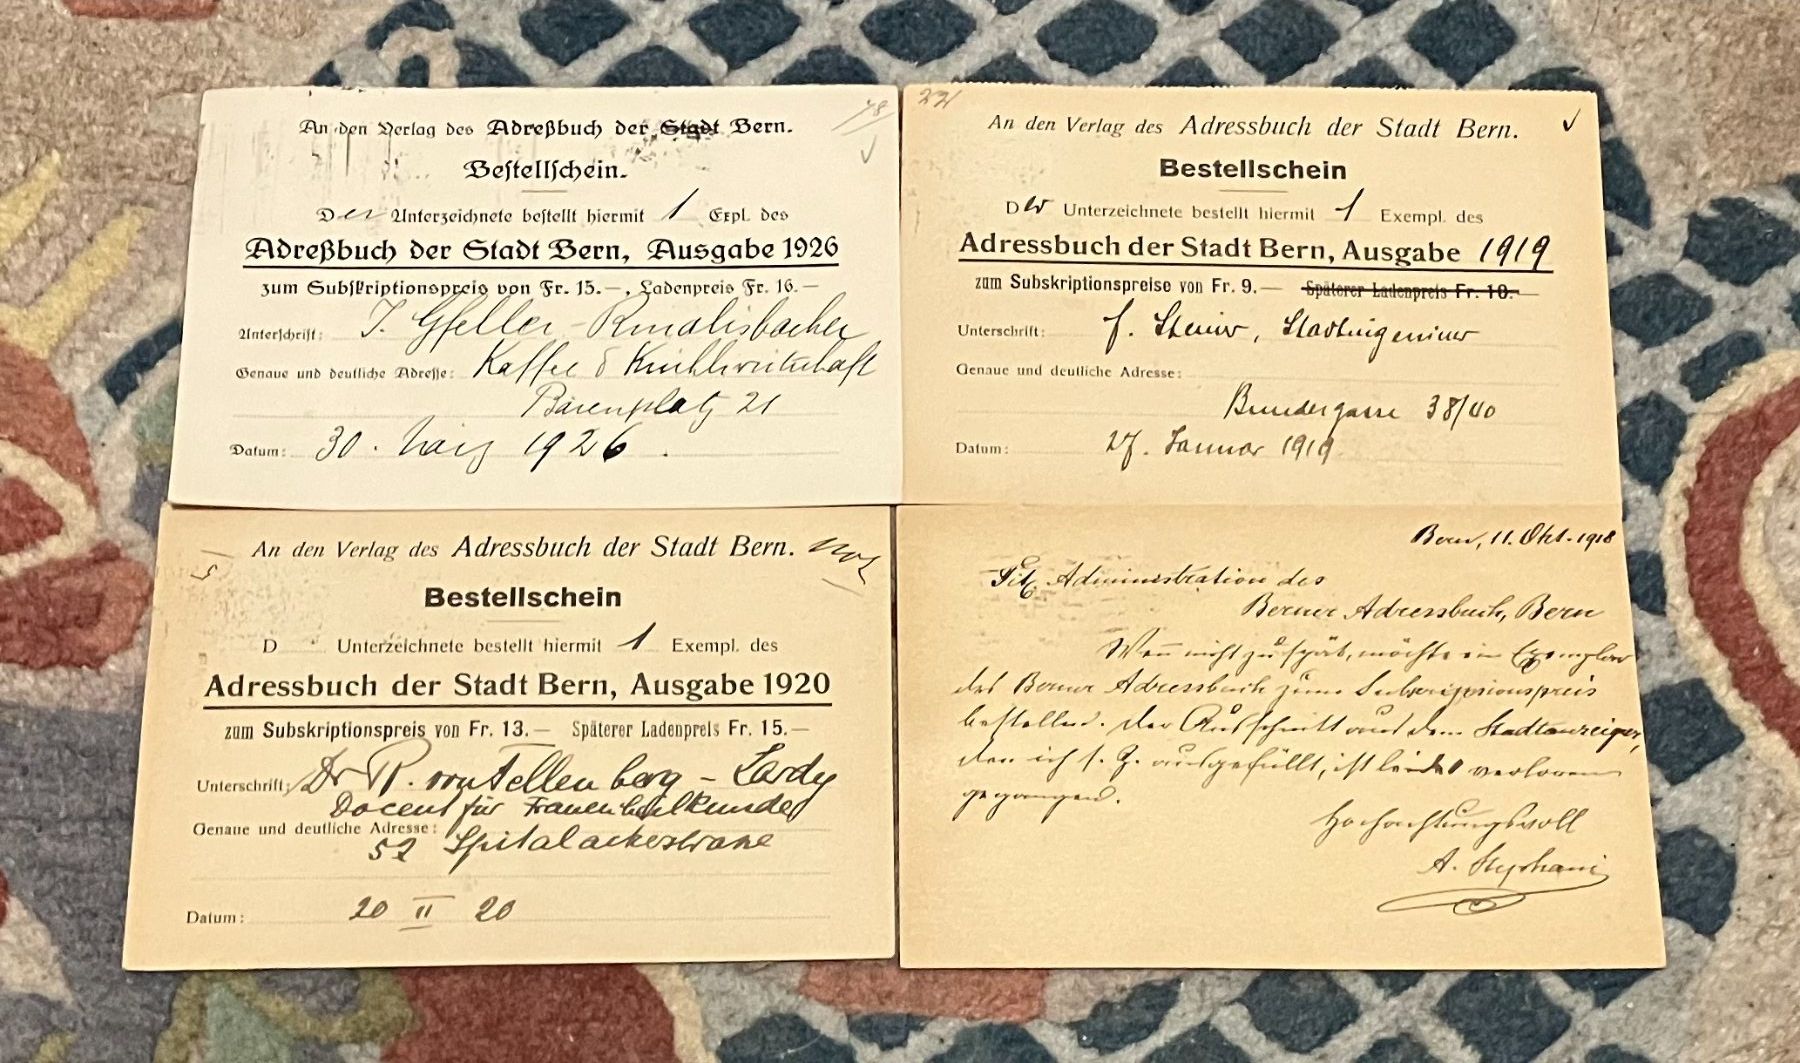 78
An den Verlag des Adreßbuch der Stadt Bern.
Bestellschein.
Der Unterzeichnete bestellt hiermit 1 Expl. des
Adreßbuch der Stadt Bern, Ausgabe 1926
zum Subskriptionspreis von Fr. 15.—, Ladenpreis Fr. 16.—
Unterschrift: J. Gfeller-Rindlisbacher
Genaue und deutliche Adresse: Kaffee & Küchliwirtschaft
Bärenplatz 21
Datum: 30. März 1926.
22
An den Verlag des Adressbuch der Stadt Bern.
Bestellschein
Der Unterzeichnete bestellt hiermit 1 Exempl. des
Adressbuch der Stadt Bern, Ausgabe 1919
zum Subskriptionspreise von Fr. 9.— Späterer Ladenpreis Fr. 10.—
Unterschrift: F. Steiner, Stadtingenieur
Genaue und deutliche Adresse:
Bundesgasse 38/40
Datum: 27. Januar 1919
An den Verlag des Adressbuch der Stadt Bern.
Bestellschein
D Unterzeichnete bestellt hiermit 1 Exempl. des
Adressbuch der Stadt Bern, Ausgabe 1920
zum Subskriptionspreis von Fr. 13.— Späterer Ladenpreis Fr. 15.—
Unterschrift: Dr R. von Fellenberg-Lardy
Docent für Frauenheilkunde
Genaue und deutliche Adresse:
52 Spitalackerstrasse
Datum: 20 II 20
Bern, 11. Okt. 1918
Tit. Administration des
Berner Adressbuch, Bern
Wenn nicht zu spät, möchte ein Exemplar
des Berner Adressbuch zum Subscriptionspreis
bestellen. Der Ausschnitt aus dem Stadtanzeiger,
den ich s. Z. ausgefüllt, ist leider verloren
gegangen.
Hochachtungsvoll
A. Stephani